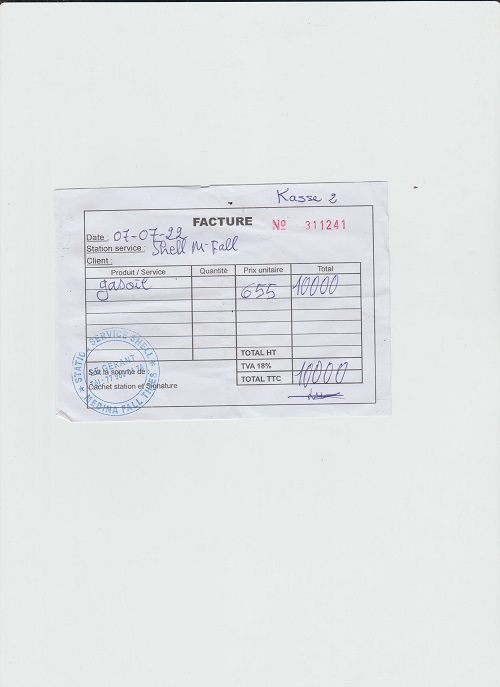 Kasse 2
FACTURE Nº 311241
Date : 07-07-22
Station service : Shell M. Fall
Client :
Produit / Service Quantité Prix unitaire Total
gasoil 655 10000
TOTAL HT
TVA 18%
Soit la somme de :
TOTAL TTC 10000
Cachet station et Signature
STATION SERVICE SHELL
LE GERANT
MEDINA FALL THIES